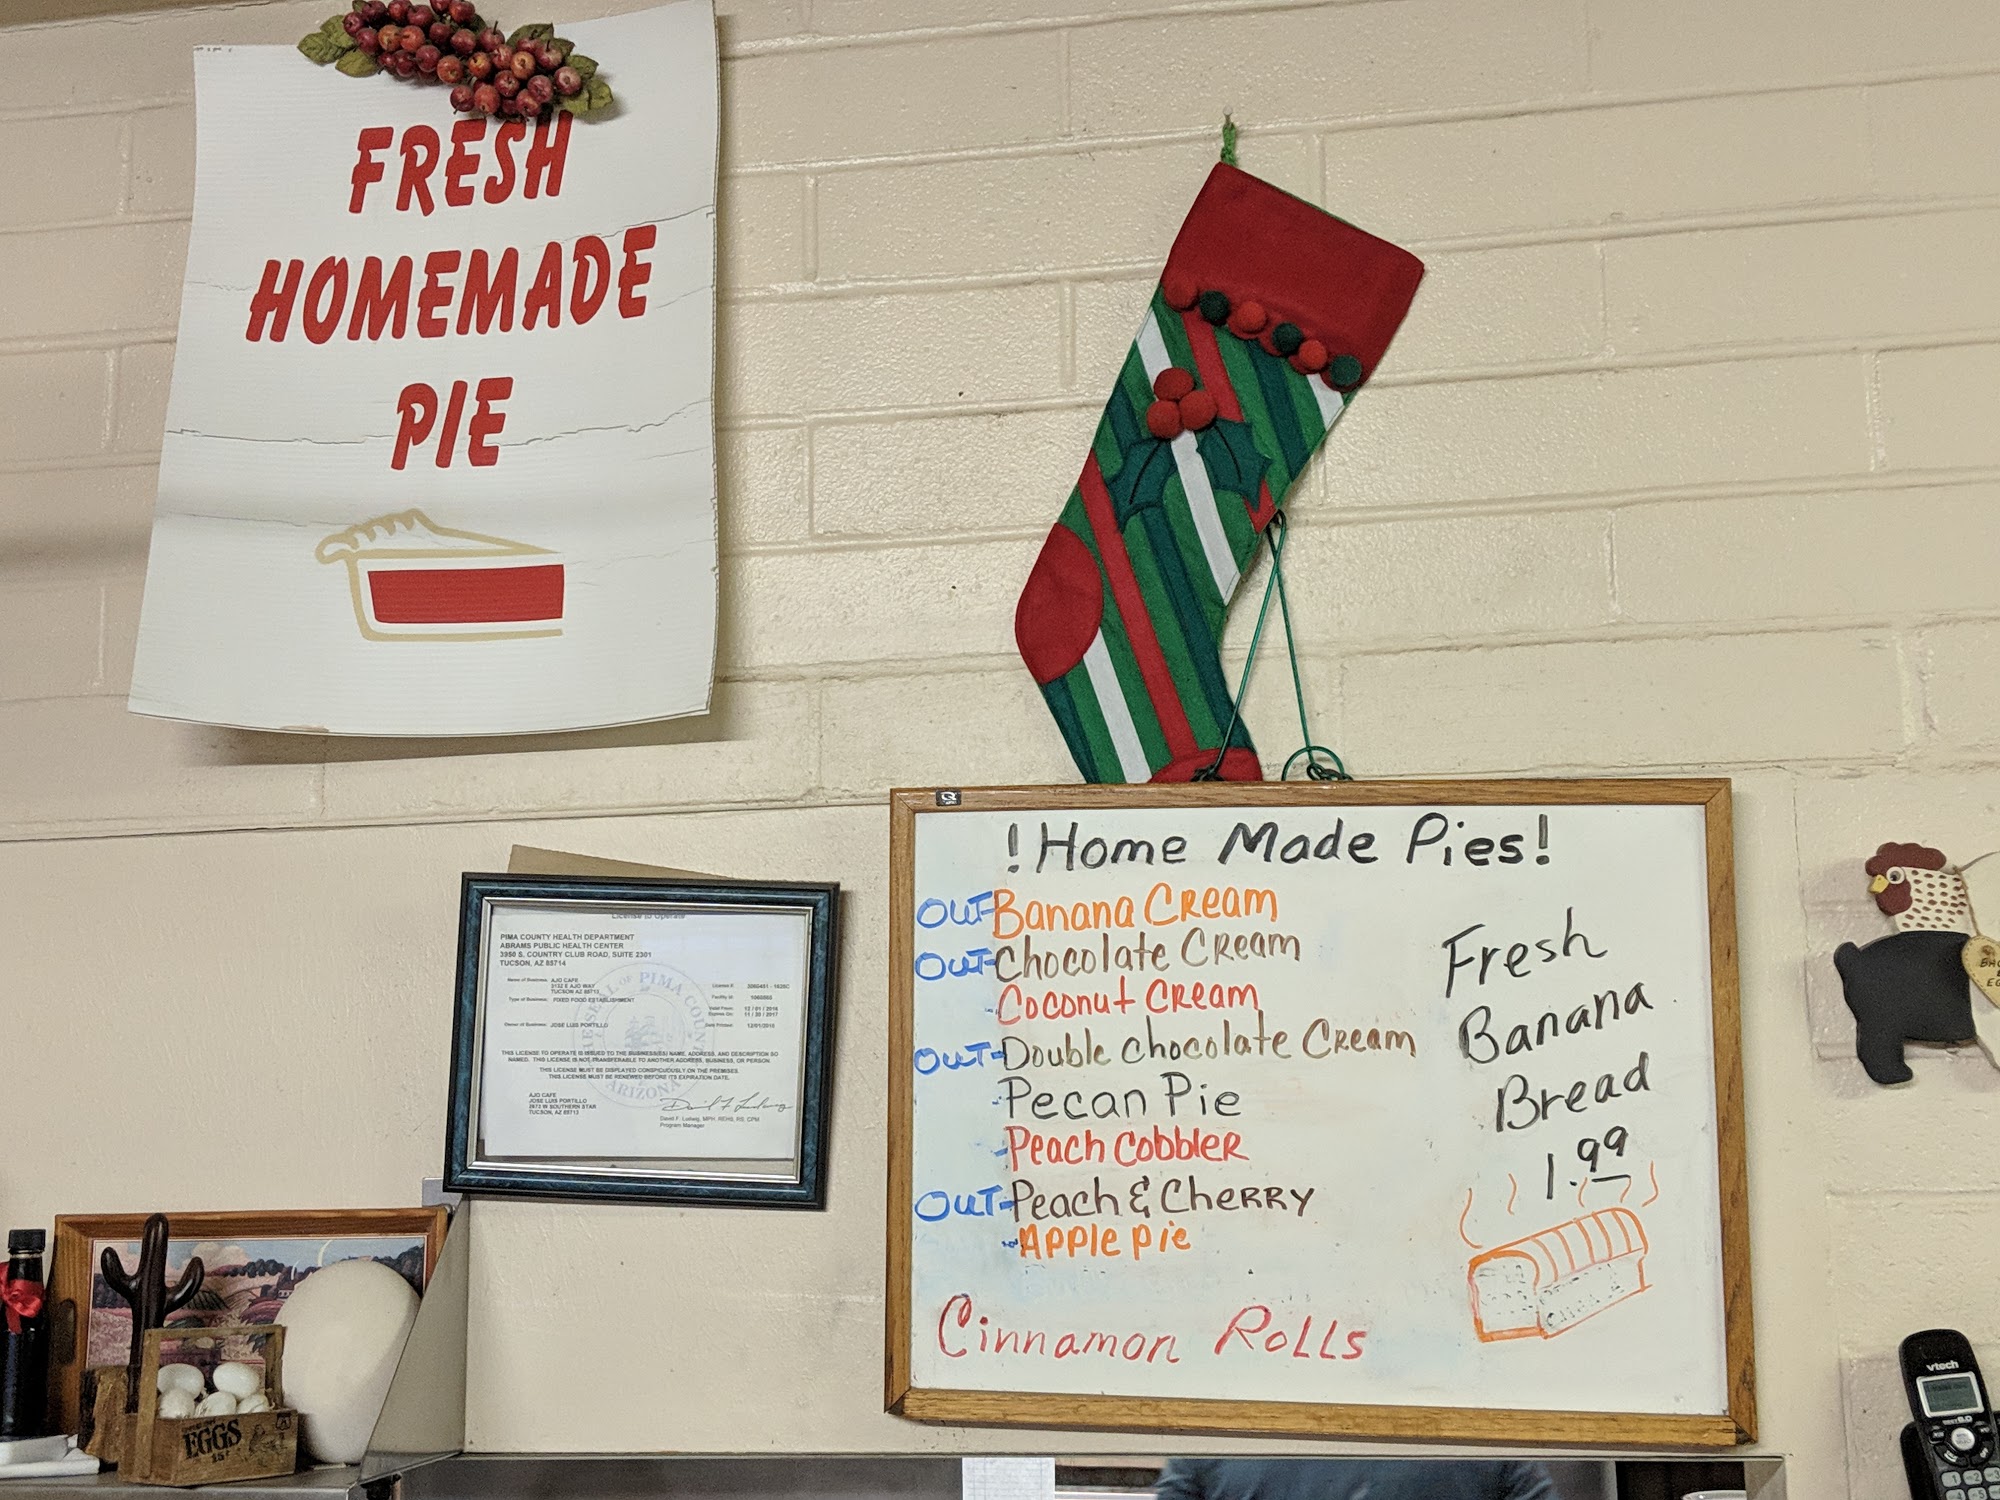 FRESH
HOMEMADE
PIE
! Home Made Pies!
OUT-Banana Cream
OUT-Chocolate Cream
-Coconut Cream
OUT-Double chocolate Cream
-Pecan Pie
-Peach Cobbler
OUT-Peach & Cherry
-Apple pie
Cinnamon Rolls
Fresh
Banana
Bread
1.99
License to Operate
PIMA COUNTY HEALTH DEPARTMENT
ABRAMS PUBLIC HEALTH CENTER
3950 S. COUNTRY CLUB ROAD, SUITE 2301
TUCSON, AZ 85714
Name of Business: AJO CAFE
3132 E AJO WAY
TUCSON AZ 85713
Type of Business: FIXED FOOD ESTABLISHMENT
Owner of Business: JOSE LUIS PORTILLO
License #:
Facility Id:
Valid From: 12 / 01 / 2016
Expires On: 11 / 30 / 2017
Date Printed: 12/01/2016
SEAL OF PIMA COUNTY
ARIZONA
THIS LICENSE TO OPERATE IS ISSUED TO THE BUSINESS(ES) NAME, ADDRESS, AND DESCRIPTION SO
NAMED. THIS LICENSE IS NOT TRANSFERABLE TO ANOTHER ADDRESS, BUSINESS, OR PERSON.
THIS LICENSE MUST BE DISPLAYED CONSPICUOUSLY ON THE PREMISES.
THIS LICENSE MUST BE RENEWED BEFORE ITS EXPIRATION DATE.
AJO CAFE
JOSE LUIS PORTILLO
2672 W SOUTHERN STAR
TUCSON, AZ 85713
David F. Ludwig, MPH, REHS, RS, CPM
Program Manager
EGGS
15¢
vtech